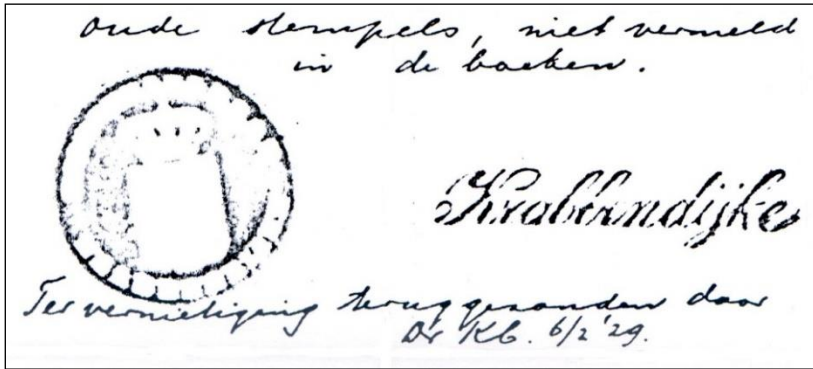 oude stempels, niet vermeld
in de boeken.
Krabbendijke
Ter vernietiging teruggezonden door
Dr Kb. 6/2 '29.